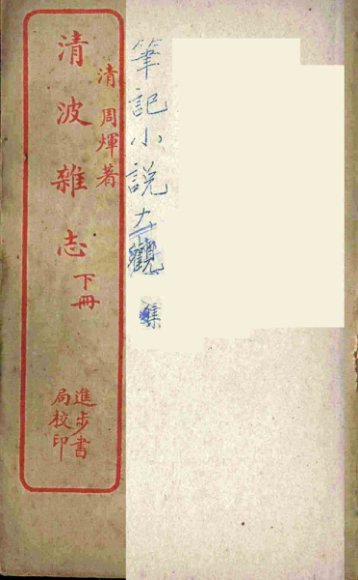 筆記小説大觀 集
清 周煇著
清波雜志 下冊
進步書
局校印